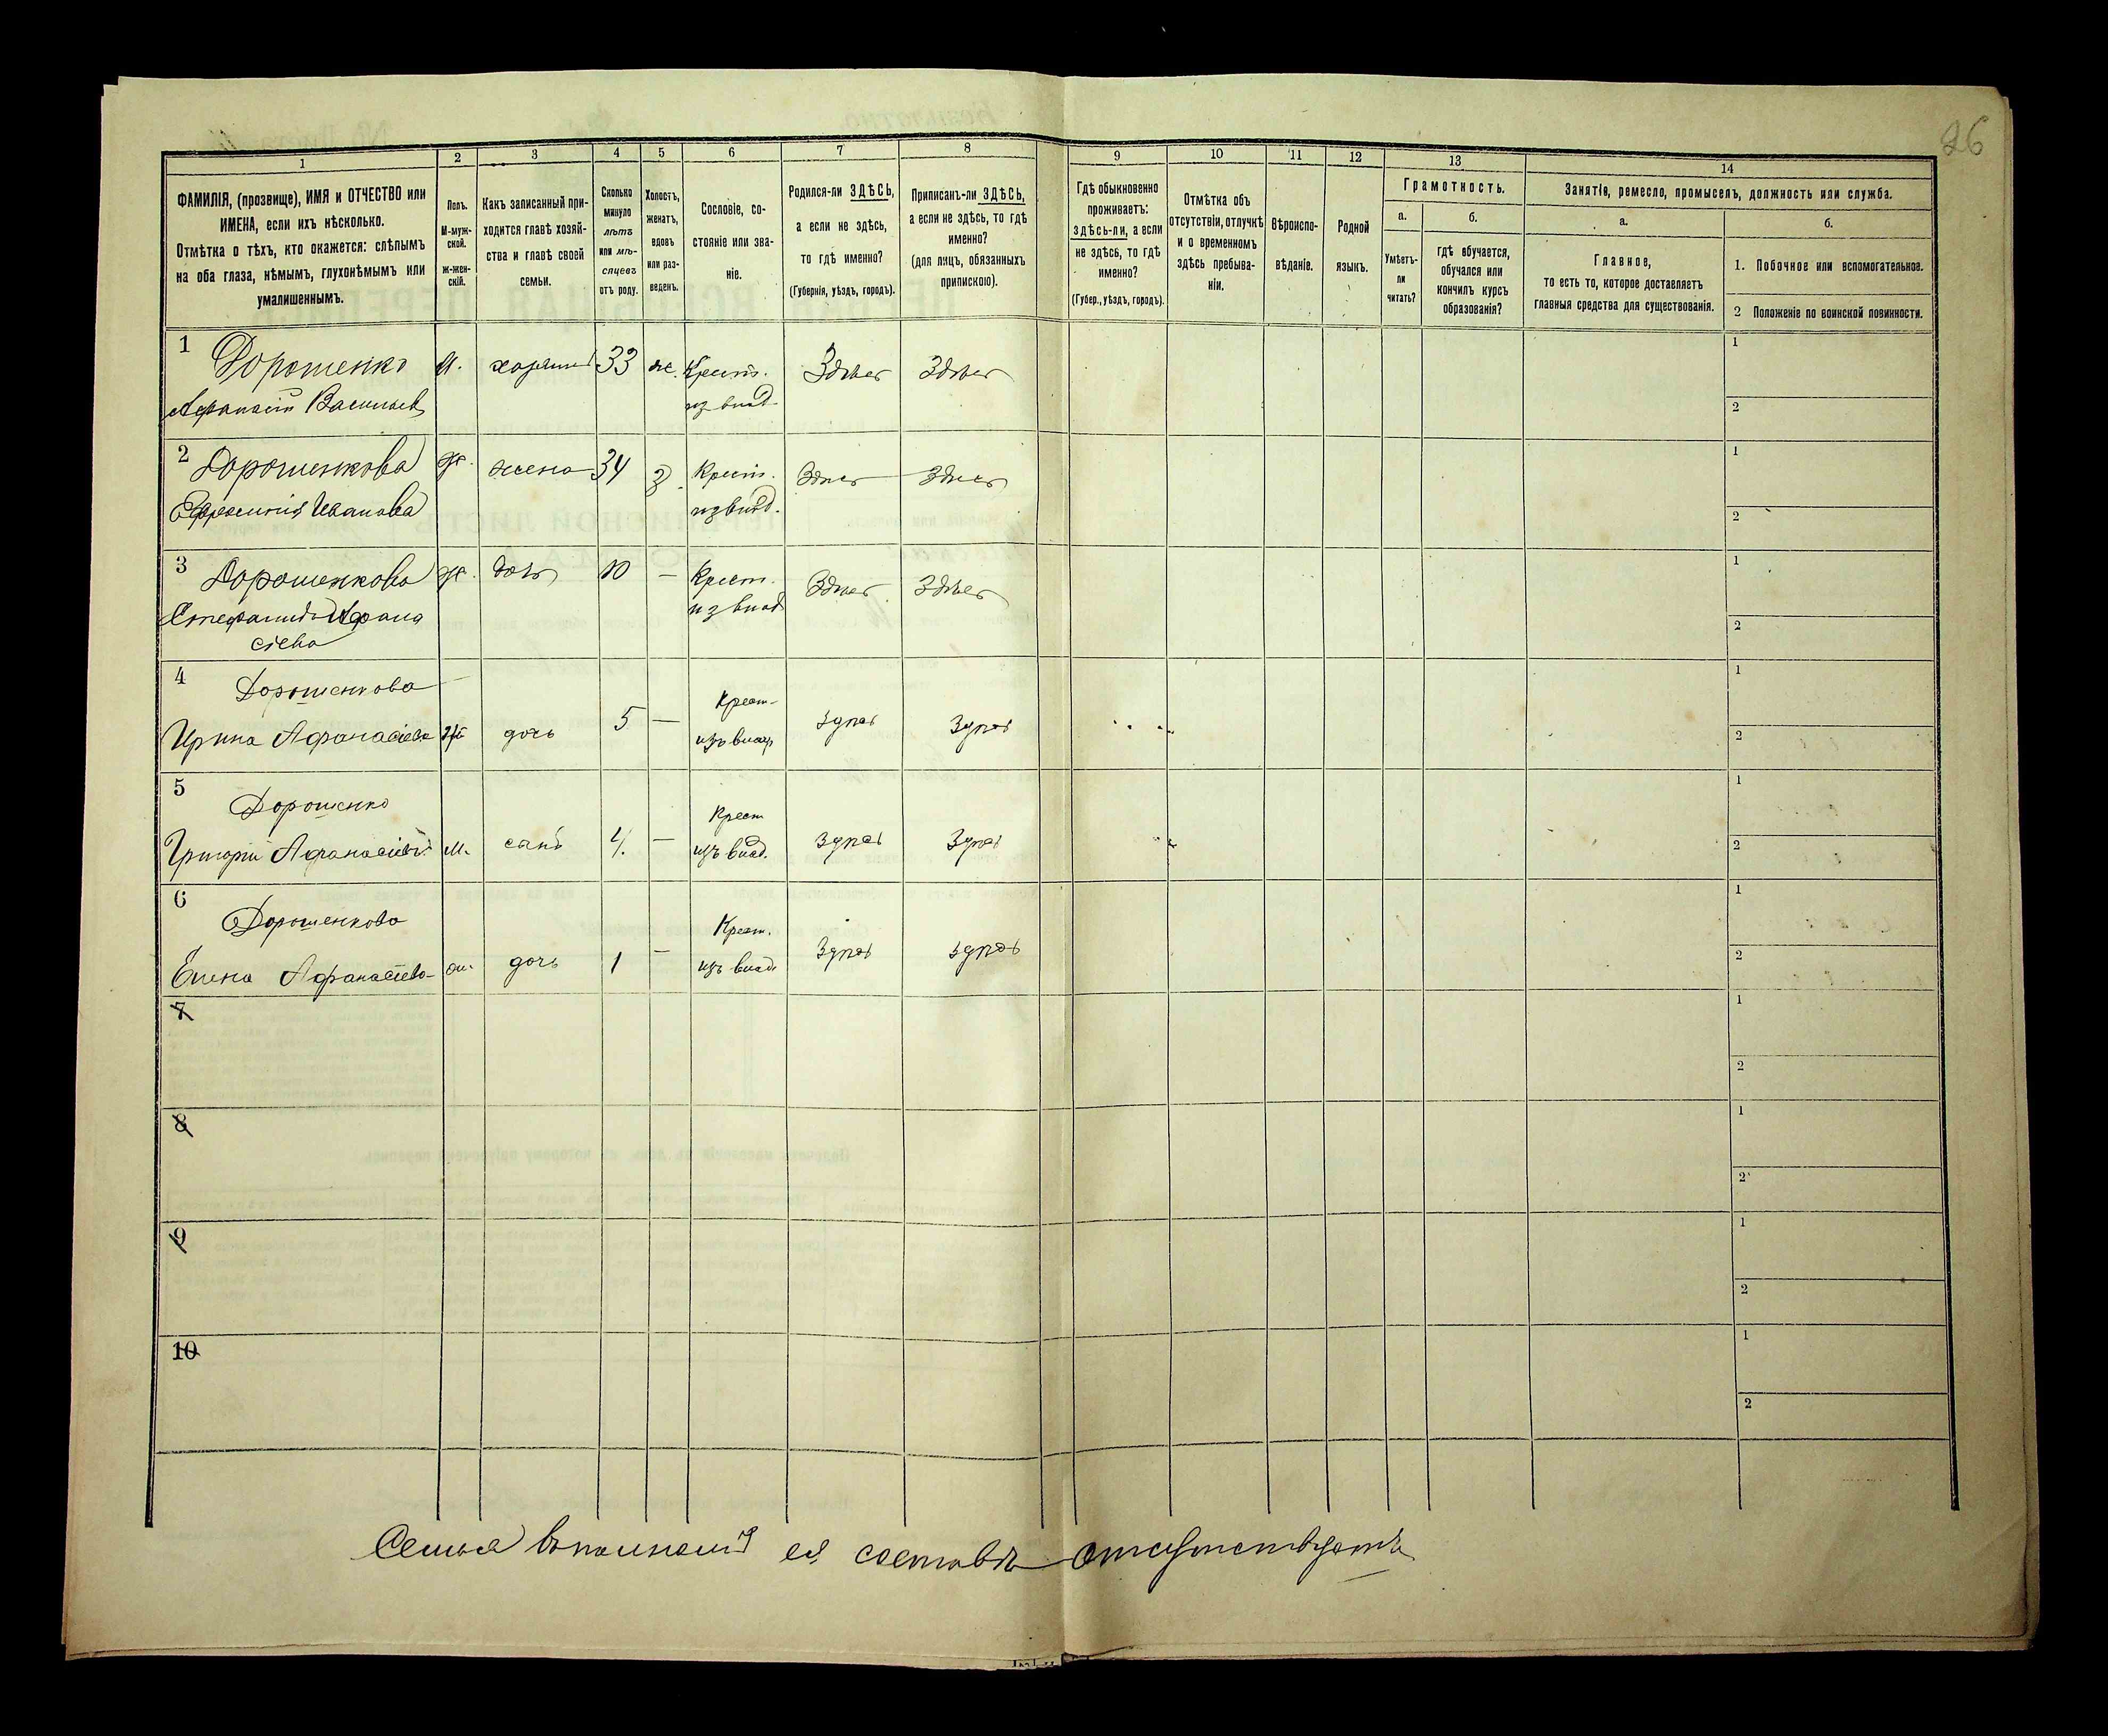 26
1 2 3 4 5 6 7 8 9 10 11 12 13 14
ФАМИЛІЯ, (прозвище), ИМЯ и ОТЧЕСТВО или
ИМЕНА, если ихъ нѣсколько.
Отмѣтка о тѣхъ, кто окажется: слѣпымъ
на оба глаза, нѣмымъ, глухонѣмымъ или
умалишеннымъ.
Полъ.
М-муж-
ской.
ж-жен-
скій.
Какъ записанный при-
ходится главѣ хозяй-
ства и главѣ своей
семьи.
Сколько
минуло
лѣтъ
или мѣ-
сяцевъ
отъ роду.
Холостъ,
женатъ,
вдовъ
или раз-
веденъ.
Сословіе, со-
стояніе или зва-
ніе.
Родился-ли ЗДѢСЬ,
а если не здѣсь,
то гдѣ именно?
(Губернія, уѣздъ, городъ).
Приписанъ-ли ЗДѢСЬ,
а если не здѣсь, то гдѣ
именно?
(для лицъ, обязанныхъ
припискою).
Гдѣ обыкновенно
проживаетъ:
здѣсь-ли, а если
не здѣсь, то гдѣ
именно?
(Губер., уѣздъ, городъ).
Отмѣтка объ
отсутствіи, отлучкѣ
и о временномъ
здѣсь пребыва-
ніи.
Вѣроиспо-
вѣданіе.
Родной
языкъ.
Грамотность.
а.
Умѣетъ-
ли
читать?
б.
гдѣ обучается,
обучался или
кончилъ курсъ
образованія?
Занятіе, ремесло, промыселъ, должность или служба.
а.
Главное,
то есть то, которое доставляетъ
главныя средства для существованія.
б.
1. Побочное или вспомогательное.
2 Положеніе по воинской повинности.
1 Дорошенко М. хозяинъ 33 ж. Крест. Здѣсь Здѣсь 1
Афанасій Васильев из влад. 2
2 Дорошенкова ж. жена 34 З. Крест. Здѣсь Здѣсь 1
Ефросинія Иванова из влад. 2
3 Дорошенкова ж. дочь 10 — Крест. Здѣсь Здѣсь 1
Стефанида Афана из влад 2
сіева
4 Дорошенкова Крест. 1
Ирина Афанасіева ж. дочь 5 — изъ влад Здѣсь Здѣсь 2
5 Дорошенко Крест 1
Григорій Афанасіевъ м. сынъ 4. — изъ влад. Здѣсь Здѣсь 2
6 Дорошенкова Крест. 1
Елена Афанасіева ж. дочь 1 — изъ влад. Здѣсь Здѣсь 2
7 1
2
8 1
2
9 1
2
10 1
2
Семья въ полномъ ея составѣ отсутствуетъ